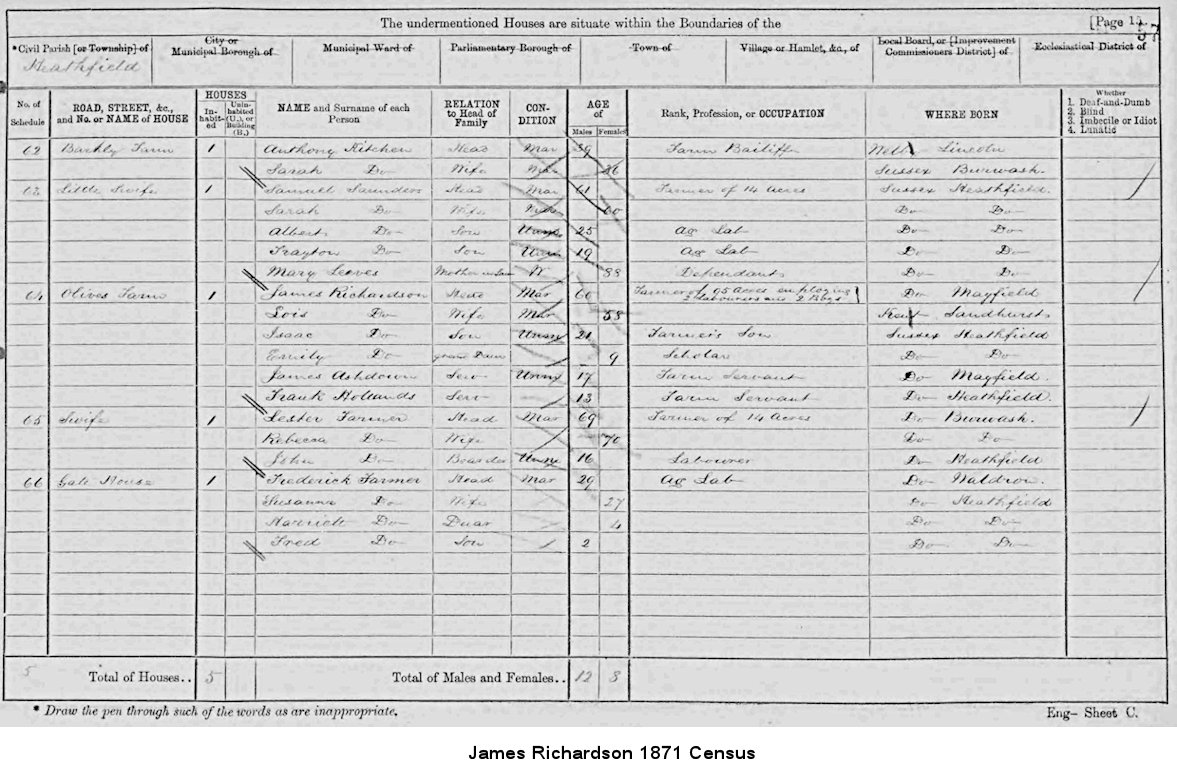 The undermentioned Houses are situate within the Boundaries of the
[Page 13
*Civil Parish [or Township] of
City or Municipal Borough of
Municipal Ward of
Parliamentary Borough of
Town of
Village or Hamlet, &c., of
Local Board, or [Improvement Commissioners District] of
Ecclesiastical District of
Heathfield
No. of Schedule
ROAD, STREET, &c., and No. or NAME of HOUSE
HOUSES
Inhabited
Uninhabited (U.), or Building (B.)
NAME and Surname of each Person
RELATION to Head of Family
CONDITION
AGE of
Males Females
Rank, Profession, or OCCUPATION
WHERE BORN
Whether
1. Deaf-and-Dumb
2. Blind
3. Imbecile or Idiot
4. Lunatic
62 Farm 1 Anthony Kitchen Head Mar 39 Farm Bailiff Lincoln
Sarah Do Wife 36 Sussex Burwash
63 Little Swife 1 Samuel Saunders Head Mar 61 Farmer of 14 Acres Sussex Heathfield
Sarah Do Wife 60 Do Do
Albert Do Son Unm 25 Ag Lab Do Do
Trayton Do Son Unm 19 Ag Lab Do Do
Mary Leeves Mother in Law W 88 Dependant Do Do
64 Olives Farm 1 James Richardson Head Mar 60 Farmer of 95 Acres employing 2 Labourers and 2 Boys Do Mayfield
Lois Do Wife Mar 58 Kent Sandhurst
Isaac Do Son Unm 21 Farmers Son Sussex Heathfield
Emily Do Grand Daur 9 Scholar Do Do
James Ashdown Serv Unm 17 Farm Servant Do Mayfield
Frank Hollands Serv 13 Farm Servant Do Heathfield
65 Swife 1 Lester Farmer Head Mar 69 Farmer of 14 Acres Do Burwash
Rebecca Do Wife 70 Do Do
John Do Boarder Unm 16 Labourer Do Heathfield
66 Gate House 1 Frederick Farmer Head Mar 29 Ag Lab Do Waldron
Susanna Do Wife 27 Do Heathfield
Harriett Do Daur 4 Do Do
Fred Do Son 2 Do Do
5 Total of Houses.. 5 Total of Males and Females.. 12 8
* Draw the pen through such of the words as are inappropriate.
Eng- Sheet C.
James Richardson 1871 Census